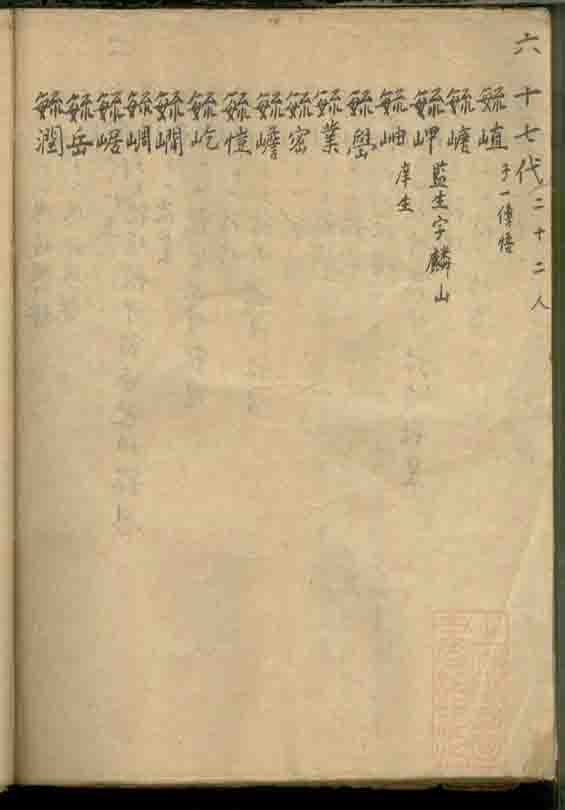 六十七代 二十二人
毓 子一傳悟
毓嵣
毓岬 監生字麟山
毓岫 庠生
毓嶨
毓業
毓密
毓嶦
毓愷
毓屹
毓
毓
毓崌
毓岳
毓潤